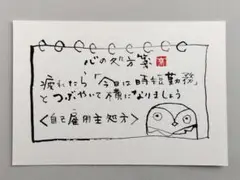 心の処方箋
疲れたら「今日は時短勤務」
とつぶやいて横になりましょう
<自己雇用主処方>